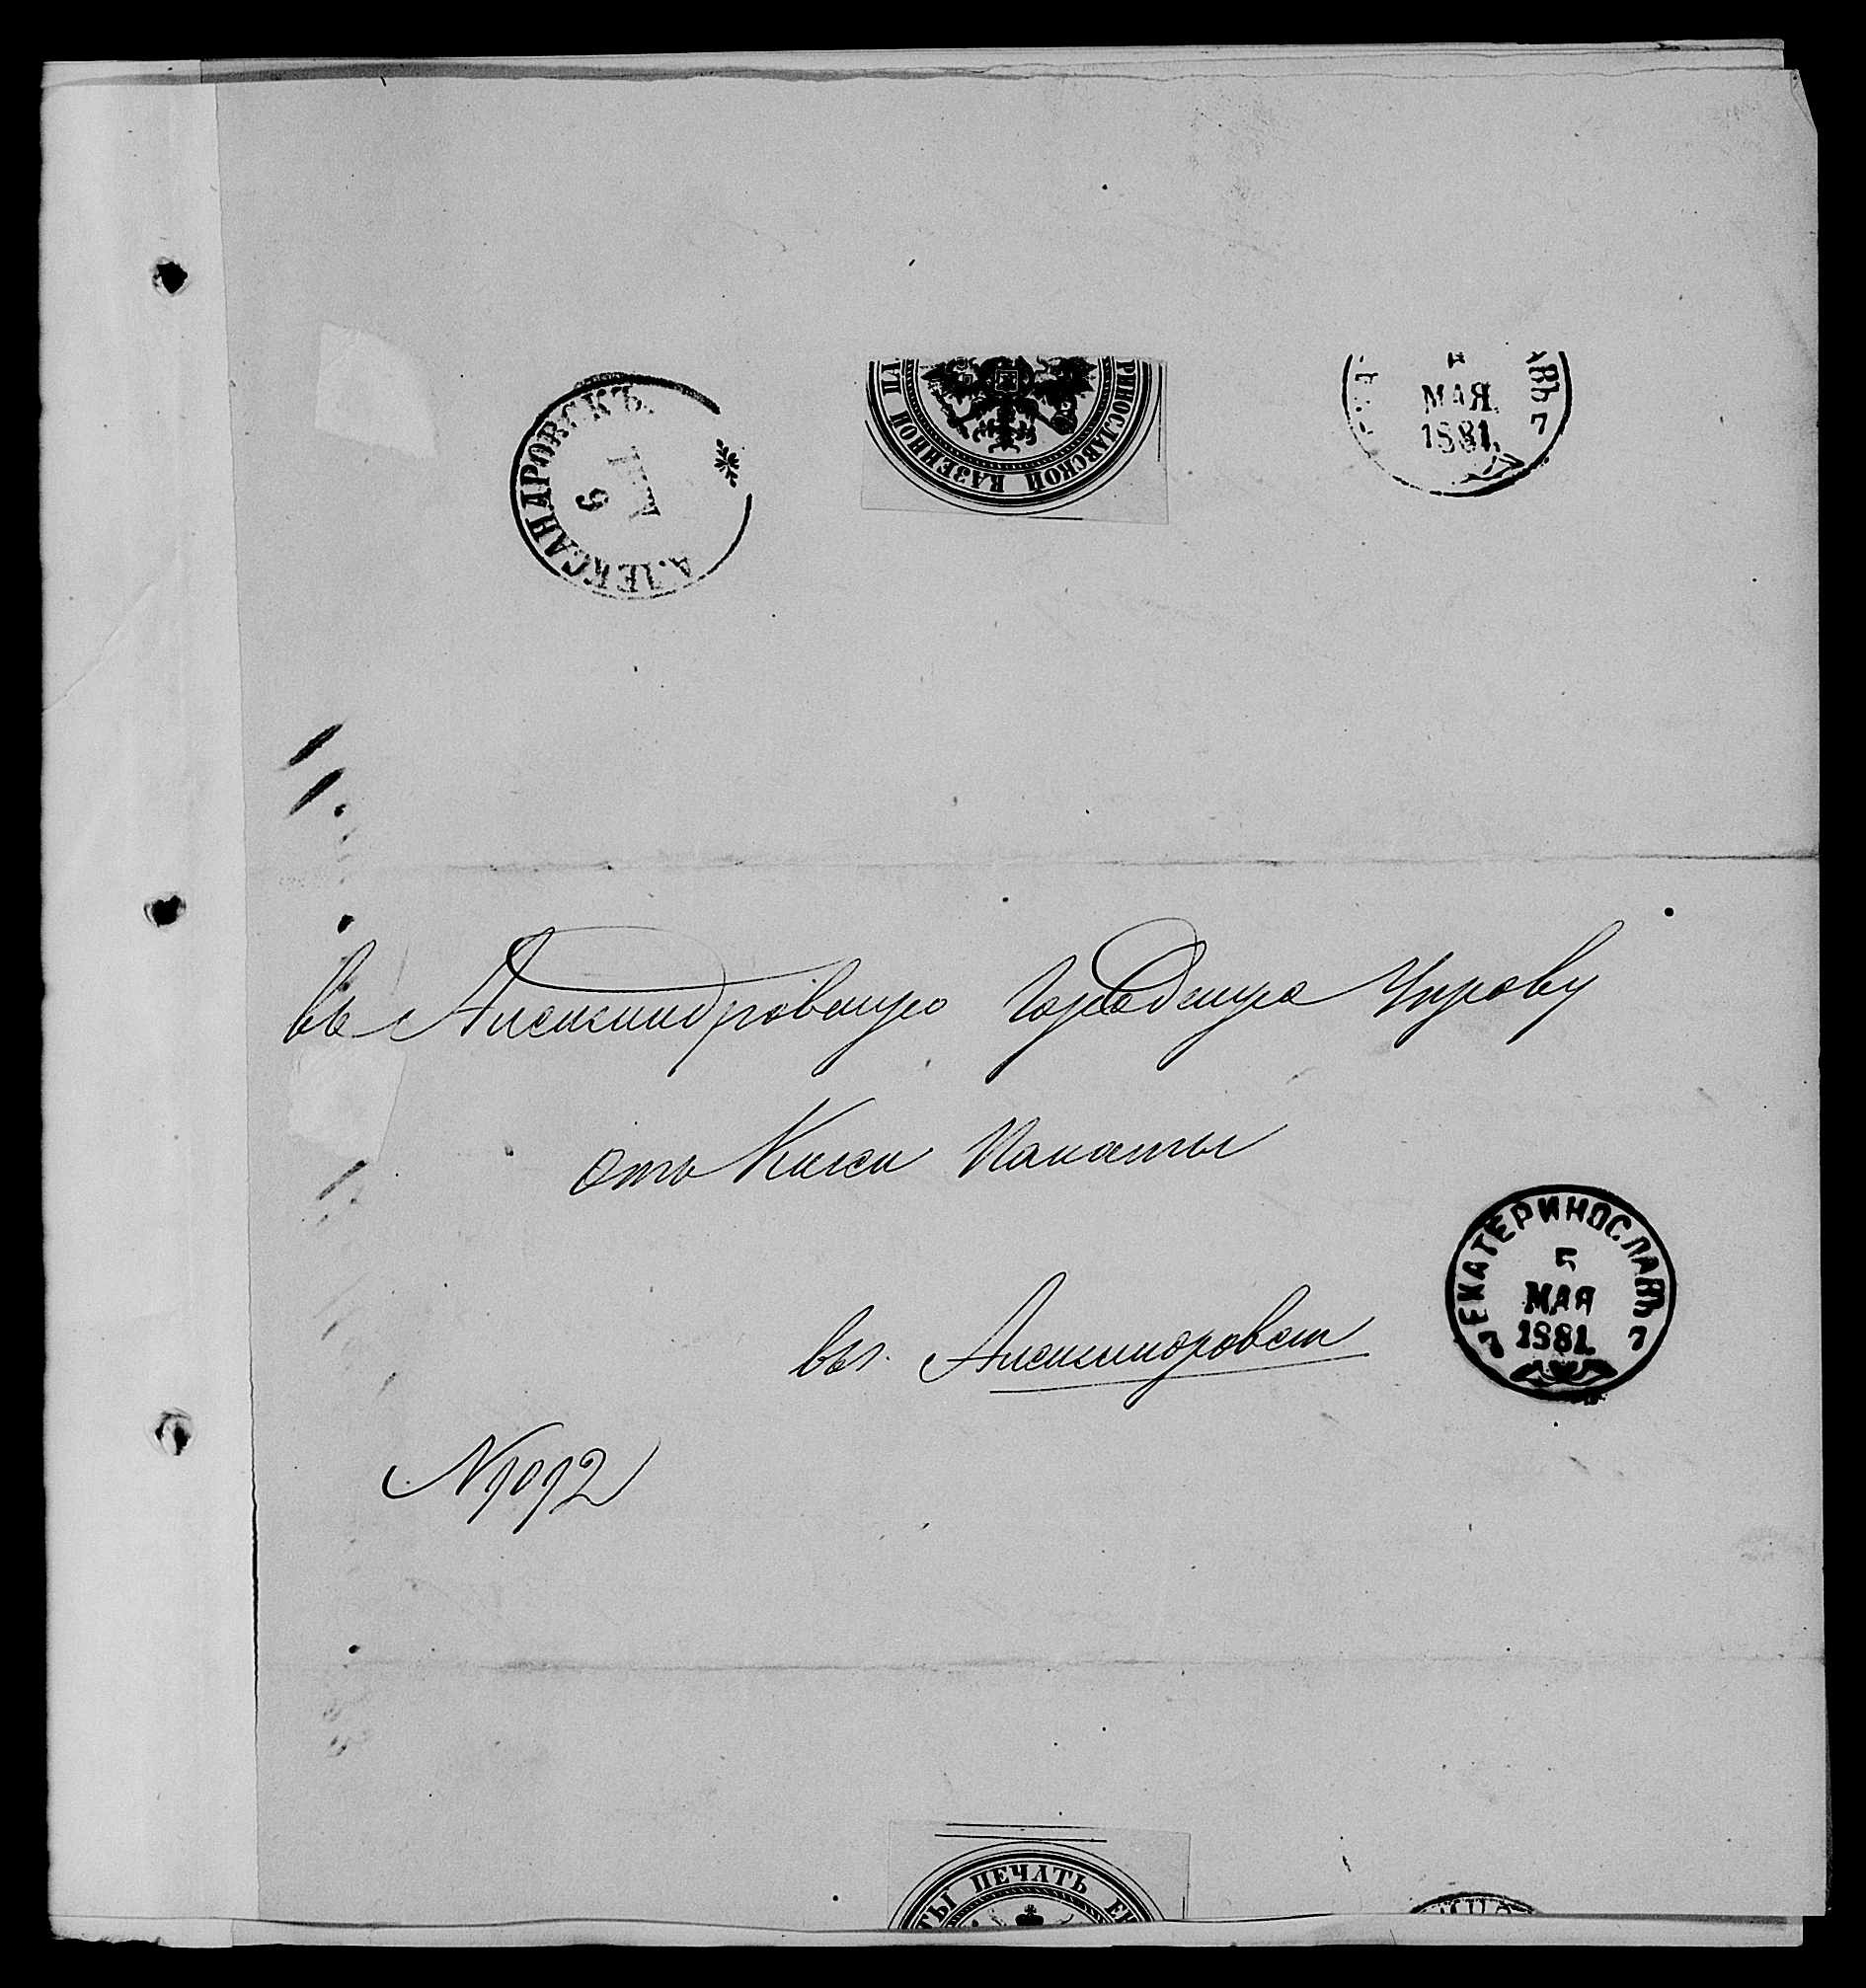 АЛЕКСАНДРОВСКЪ.
6
РИНОСЛАВСКОЙ КАЗЕННОЙ ПА
МАЯ.
1881.
7
Въ Александровскую Городскую Управу
отъ Казен Палаты
въ г. Александровск
N 1092
ЕКАТЕРИНОСЛАВЪ
5
МАЯ
1881.
7 7
ТЫ ПЕЧАТЬ ЕК